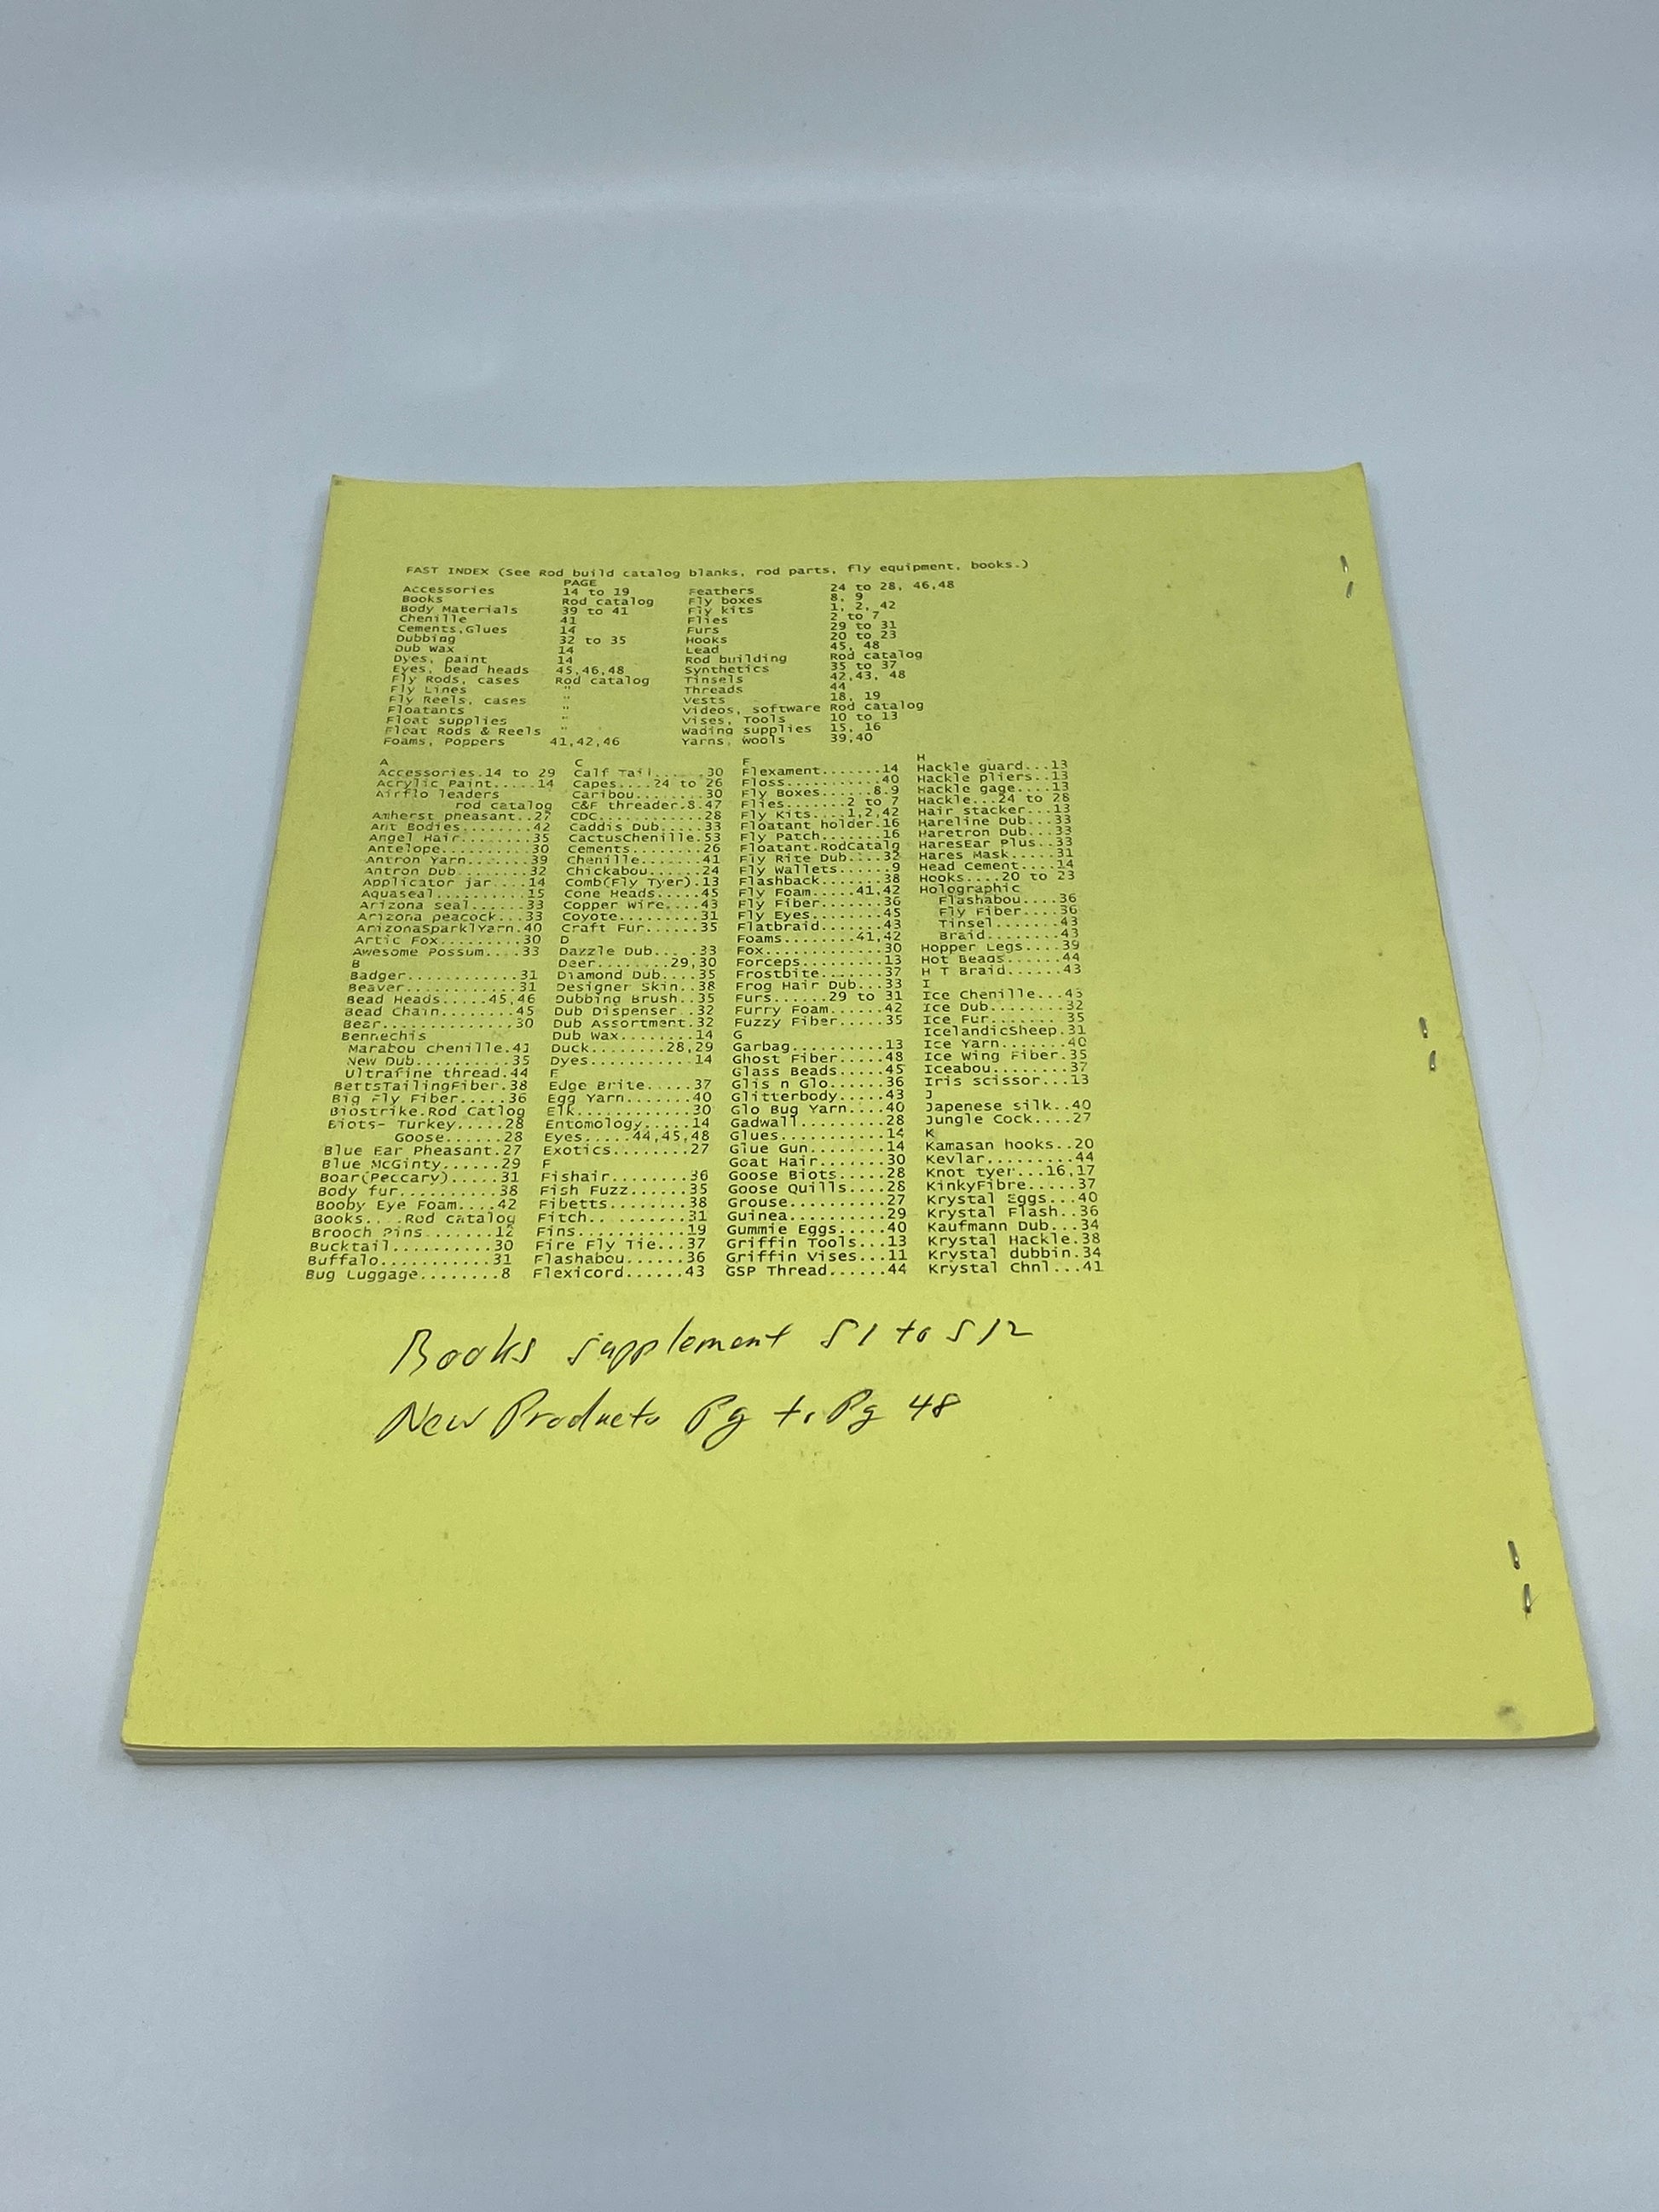 FAST INDEX (See Rod build catalog blanks, rod parts, fly equipment, books.)
PAGE
Accessories 14 to 19 Feathers 24 to 28, 46,48
Books Rod catalog Fly boxes 8, 9
Body Materials 39 to 41 Fly kits 1, 2, 42
Chenille 41 Flies 2 to 7
Cements,Glues 14 Furs 29 to 31
Dubbing 32 to 35 Hooks 20 to 23
Dub Wax 14 Lead 45, 48
Dyes, paint 14 Rod building Rod catalog
Eyes, bead heads 45,46,48 Synthetics 35 to 37
Fly Rods, cases Rod catalog Tinsels 42,43, 48
Fly Lines " Threads 44
Fly Reels, cases " Vests 18, 19
Floatants " Videos, software Rod catalog
Float supplies " Vises, Tools 10 to 13
Float Rods & Reels " Wading supplies 15, 16
Foams, Poppers 41,42,46 Yarns, wools 39,40
A
Accessories.14 to 29
Acrylic Paint.....14
Airflo leaders
rod catalog
Amherst pheasant..27
Ant Bodies........42
Angel Hair........35
Antelope..........30
Antron Yarn.......39
Antron Dub........32
Applicator jar....14
Aquaseal..........15
Arizona seal......33
Arizona peacock...33
ArizonaSparklYarn.40
Artic Fox.........30
Awesome Possum....33
B
Badger............31
Beaver............31
Bead Heads.....45,46
Bead Chain........45
Bear..............30
Bennechis
Marabou chenille.41
New Dub..........35
Ultrafine thread.44
BettsTailingFiber.38
Big Fly Fiber.....36
Biostrike.Rod Catlog
Biots- Turkey.....28
Goose......28
Blue Ear Pheasant.27
Blue McGinty......29
Boar(Peccary).....31
Body fur..........38
Booby Eye Foam....42
Books....Rod catalog
Brooch Pins.......12
Bucktail..........30
Buffalo...........31
Bug Luggage........8
C
Calf Tail......30
Capes....24 to 26
Caribou........30
C&F threader.8.47
CDC............28
Caddis Dub.....33
CactusChenille.53
Cements........26
Chenille.......41
Chickabou......24
Comb(Fly Tyer).13
Cone Heads.....45
Copper Wire....43
Coyote.........31
Craft Fur......35
D
Dazzle Dub.....33
Deer........29,30
Diamond Dub....35
Designer Skin..38
Dubbing Brush..35
Dub Dispenser..32
Dub Assortment.32
Dub Wax........14
Duck........28,29
Dyes...........14
E
Edge Brite.....37
Egg Yarn.......40
Elk............30
Entomology.....14
Eyes.....44,45,48
Exotics........27
F
Fishair........36
Fish Fuzz......35
Fibetts........38
Fitch..........31
Fins...........19
Fire Fly Tie...37
Flashabou......36
Flexicord......43
F
Flexament.......14
Floss...........40
Fly Boxes......8.9
Flies.......2 to 7
Fly Kits....1,2,42
Floatant holder.16
Fly Patch.......16
Floatant.RodCatalg
Fly Rite Dub....32
Fly Wallets......9
Flashback.......38
Fly Foam.....41,42
Fly Fiber.......36
Fly Eyes........45
Flatbraid.......43
Foams........41,42
Fox.............30
Forceps.........13
Frostbite.......37
Frog Hair Dub...33
Furs......29 to 31
Furry Foam......42
Fuzzy Fiber.....35
G
Garbag..........13
Ghost Fiber.....48
Glass Beads.....45
Glis n Glo......36
Glitterbody.....43
Glo Bug Yarn....40
Gadwall.........28
Glues...........14
Glue Gun........14
Goat Hair.......30
Goose Biots.....28
Goose Quills....28
Grouse..........27
Guinea..........29
Gummie Eggs.....40
Griffin Tools...13
Griffin Vises...11
GSP Thread......44
H
Hackle guard...13
Hackle pliers..13
Hackle gage....13
Hackle...24 to 28
Hair stacker...13
Hareline Dub...33
Haretron Dub...33
HaresEar Plus..33
Hares Mask.....31
Head Cement....14
Hooks....20 to 23
Holographic
Flashabou....36
Fly Fiber....36
Tinsel.......43
Braid........43
Hopper Legs....39
Hot Beads......44
H T Braid......43
I
Ice Chenille...45
Ice Dub........32
Ice Fur........35
IcelandicSheep.31
Ice Yarn.......40
Ice Wing Fiber.35
Iceabou........37
Iris scissor...13
J
Japenese silk..40
Jungle Cock....27
K
Kamasan hooks..20
Kevlar.........44
Knot tyer...16,17
KinkyFibre.....37
Krystal Eggs...40
Krystal Flash..36
Kaufmann Dub...34
Krystal Hackle.38
Krystal dubbin.34
Krystal Chnl...41
Books supplement S1 to S12
New Products Pg to Pg 48